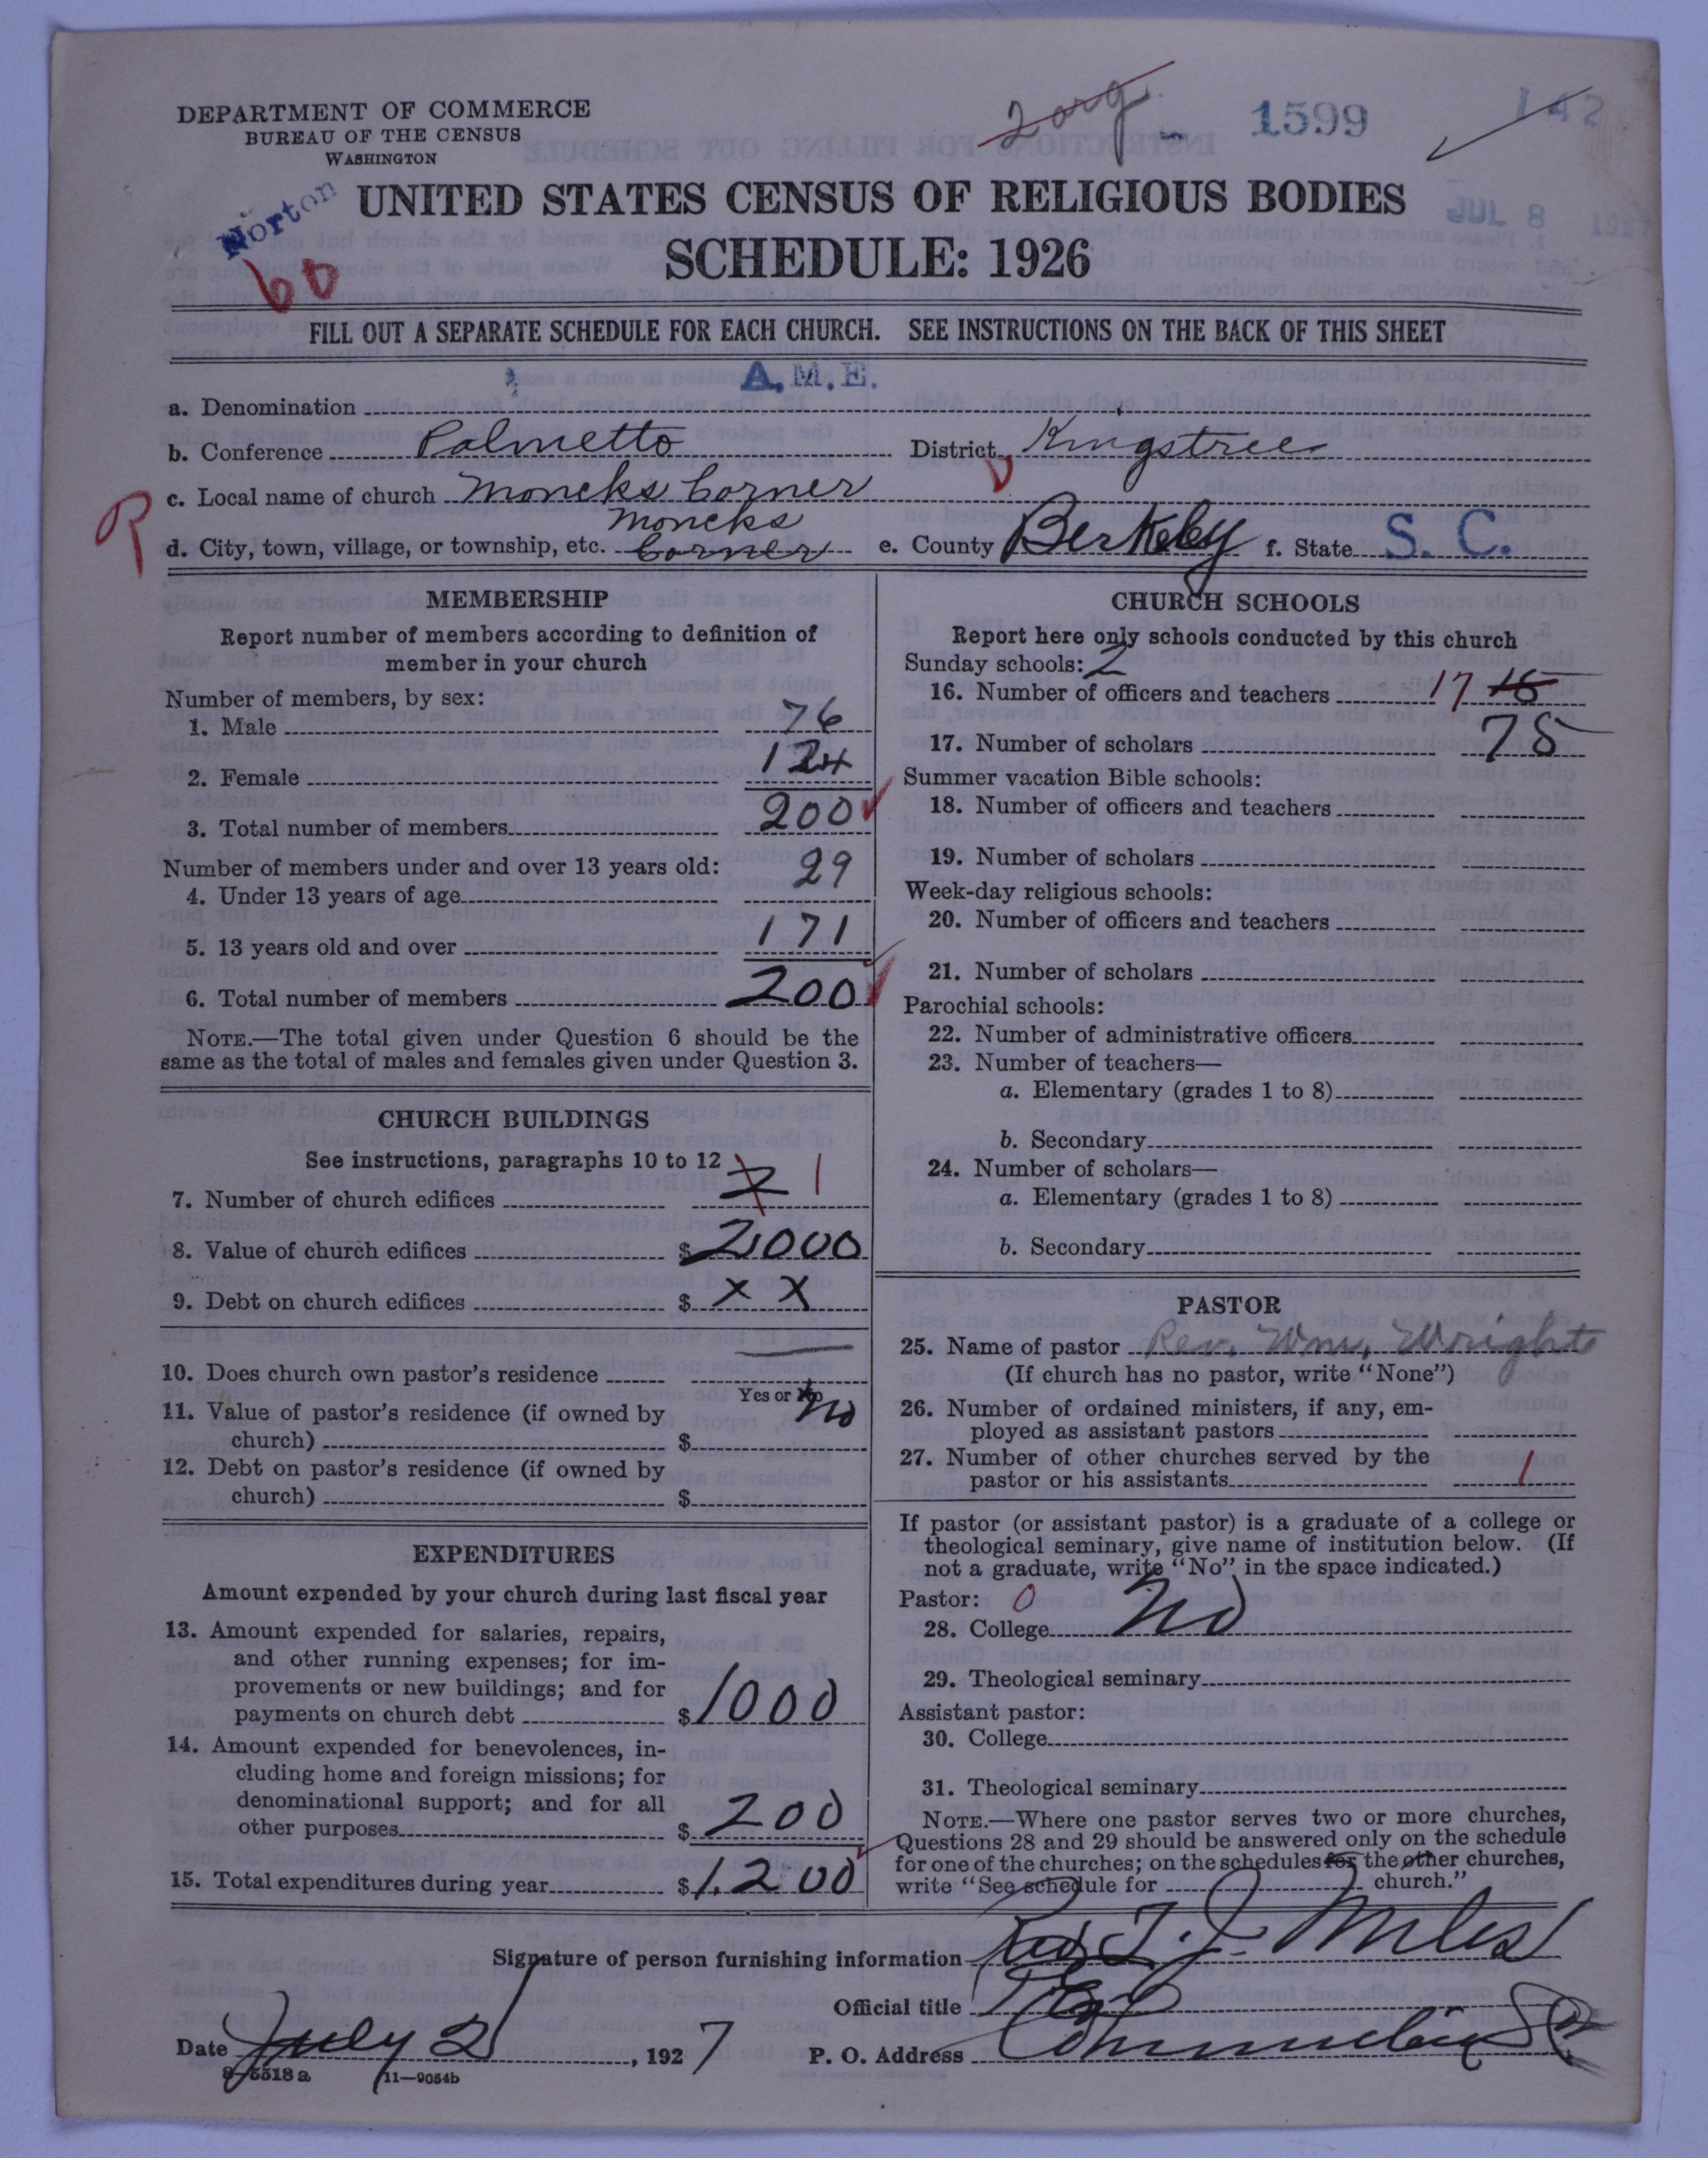 DEPARTMENT OF COMMERCE
BUREAU OF THE CENSUS
WASHINGTON
2 org.
1599
142
Norton
60
UNITED STATES CENSUS OF RELIGIOUS BODIES
JUL 8 1927
SCHEDULE: 1926
FILL OUT A SEPARATE SCHEDULE FOR EACH CHURCH. SEE INSTRUCTIONS ON THE BACK OF THIS SHEET
a. Denomination A.M.E.
b. Conference Palmetto District Kingstree
c. Local name of church Moncks Corner
R
d. City, town, village, or township, etc. Moncks Corner e. County Berkeley f. State S. C.
MEMBERSHIP
Report number of members according to definition of
member in your church
Number of members, by sex:
1. Male 76
2. Female 124
3. Total number of members 200
Number of members under and over 13 years old:
4. Under 13 years of age 29
5. 13 years old and over 171
6. Total number of members 200
NOTE.—The total given under Question 6 should be the
same as the total of males and females given under Question 3.
CHURCH BUILDINGS
See instructions, paragraphs 10 to 12
7. Number of church edifices 2 1
8. Value of church edifices $ 2000
9. Debt on church edifices $ X X
10. Does church own pastor's residence
Yes or No No
11. Value of pastor's residence (if owned by
church) $
12. Debt on pastor's residence (if owned by
church) $
EXPENDITURES
Amount expended by your church during last fiscal year
13. Amount expended for salaries, repairs,
and other running expenses; for im-
provements or new buildings; and for
payments on church debt $ 1000
14. Amount expended for benevolences, in-
cluding home and foreign missions; for
denominational support; and for all
other purposes $ 200
15. Total expenditures during year $ 1.200
CHURCH SCHOOLS
Report here only schools conducted by this church
Sunday schools: 2
16. Number of officers and teachers 17 15
17. Number of scholars 75
Summer vacation Bible schools:
18. Number of officers and teachers
19. Number of scholars
Week-day religious schools:
20. Number of officers and teachers
21. Number of scholars
Parochial schools:
22. Number of administrative officers
23. Number of teachers—
a. Elementary (grades 1 to 8)
b. Secondary
24. Number of scholars—
a. Elementary (grades 1 to 8)
b. Secondary
PASTOR
25. Name of pastor Rev. Wm. Wright
(If church has no pastor, write "None")
26. Number of ordained ministers, if any, em-
ployed as assistant pastors
27. Number of other churches served by the
pastor or his assistants 1
If pastor (or assistant pastor) is a graduate of a college or
theological seminary, give name of institution below. (If
not a graduate, write "No" in the space indicated.)
Pastor: 0
28. College No
29. Theological seminary
Assistant pastor:
30. College
31. Theological seminary
NOTE.—Where one pastor serves two or more churches,
Questions 28 and 29 should be answered only on the schedule
for one of the churches; on the schedules for the other churches,
write "See schedule for church."
Signature of person furnishing information Rev T. J. Miles
Official title P. E.
Date July 2, 1927 P. O. Address Columbia SC
8-5518a 11—9054b